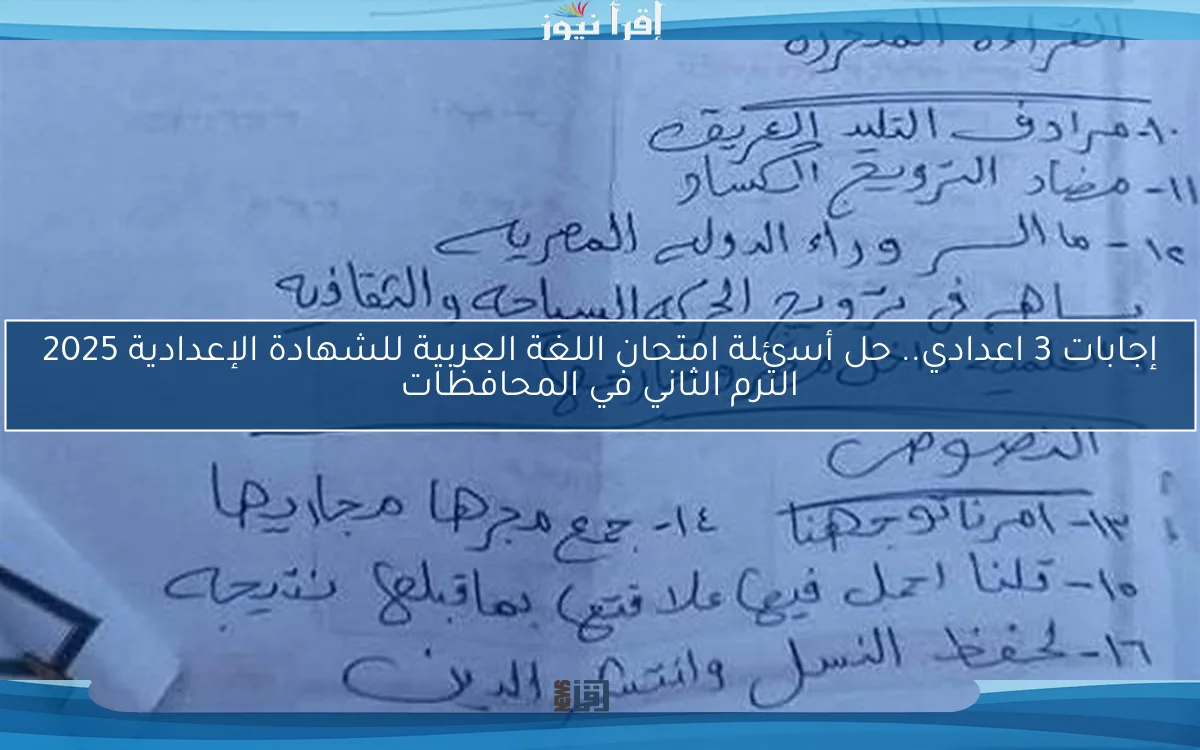 إقرأ نيوز
القراءة المتحررة
١٠- مرادف التليد العريق
١١- مضاد الترويج الكساد
١٢- ما السر وراء الدولة المصرية
يساهم في ترويج الحركة السياحة والثقافية
إجابات 3 اعدادي.. حل أسئلة امتحان اللغة العربية للشهادة الإعدادية 2025
الترم الثاني في المحافظات
النصوص
١٣- امرنا توجهنا ١٤- جمع مجرها مجاريها
١٥- قلنا احمل فيها علاقتها بما قبلها نتيجه
١٦- لحفظ النسل وانتشار الدين
إقرأ NEWS